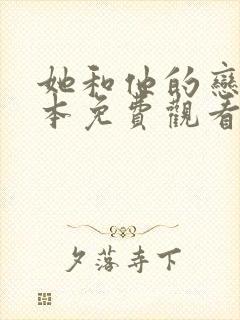 她和他的戀
本免費觀看
夕落寺下